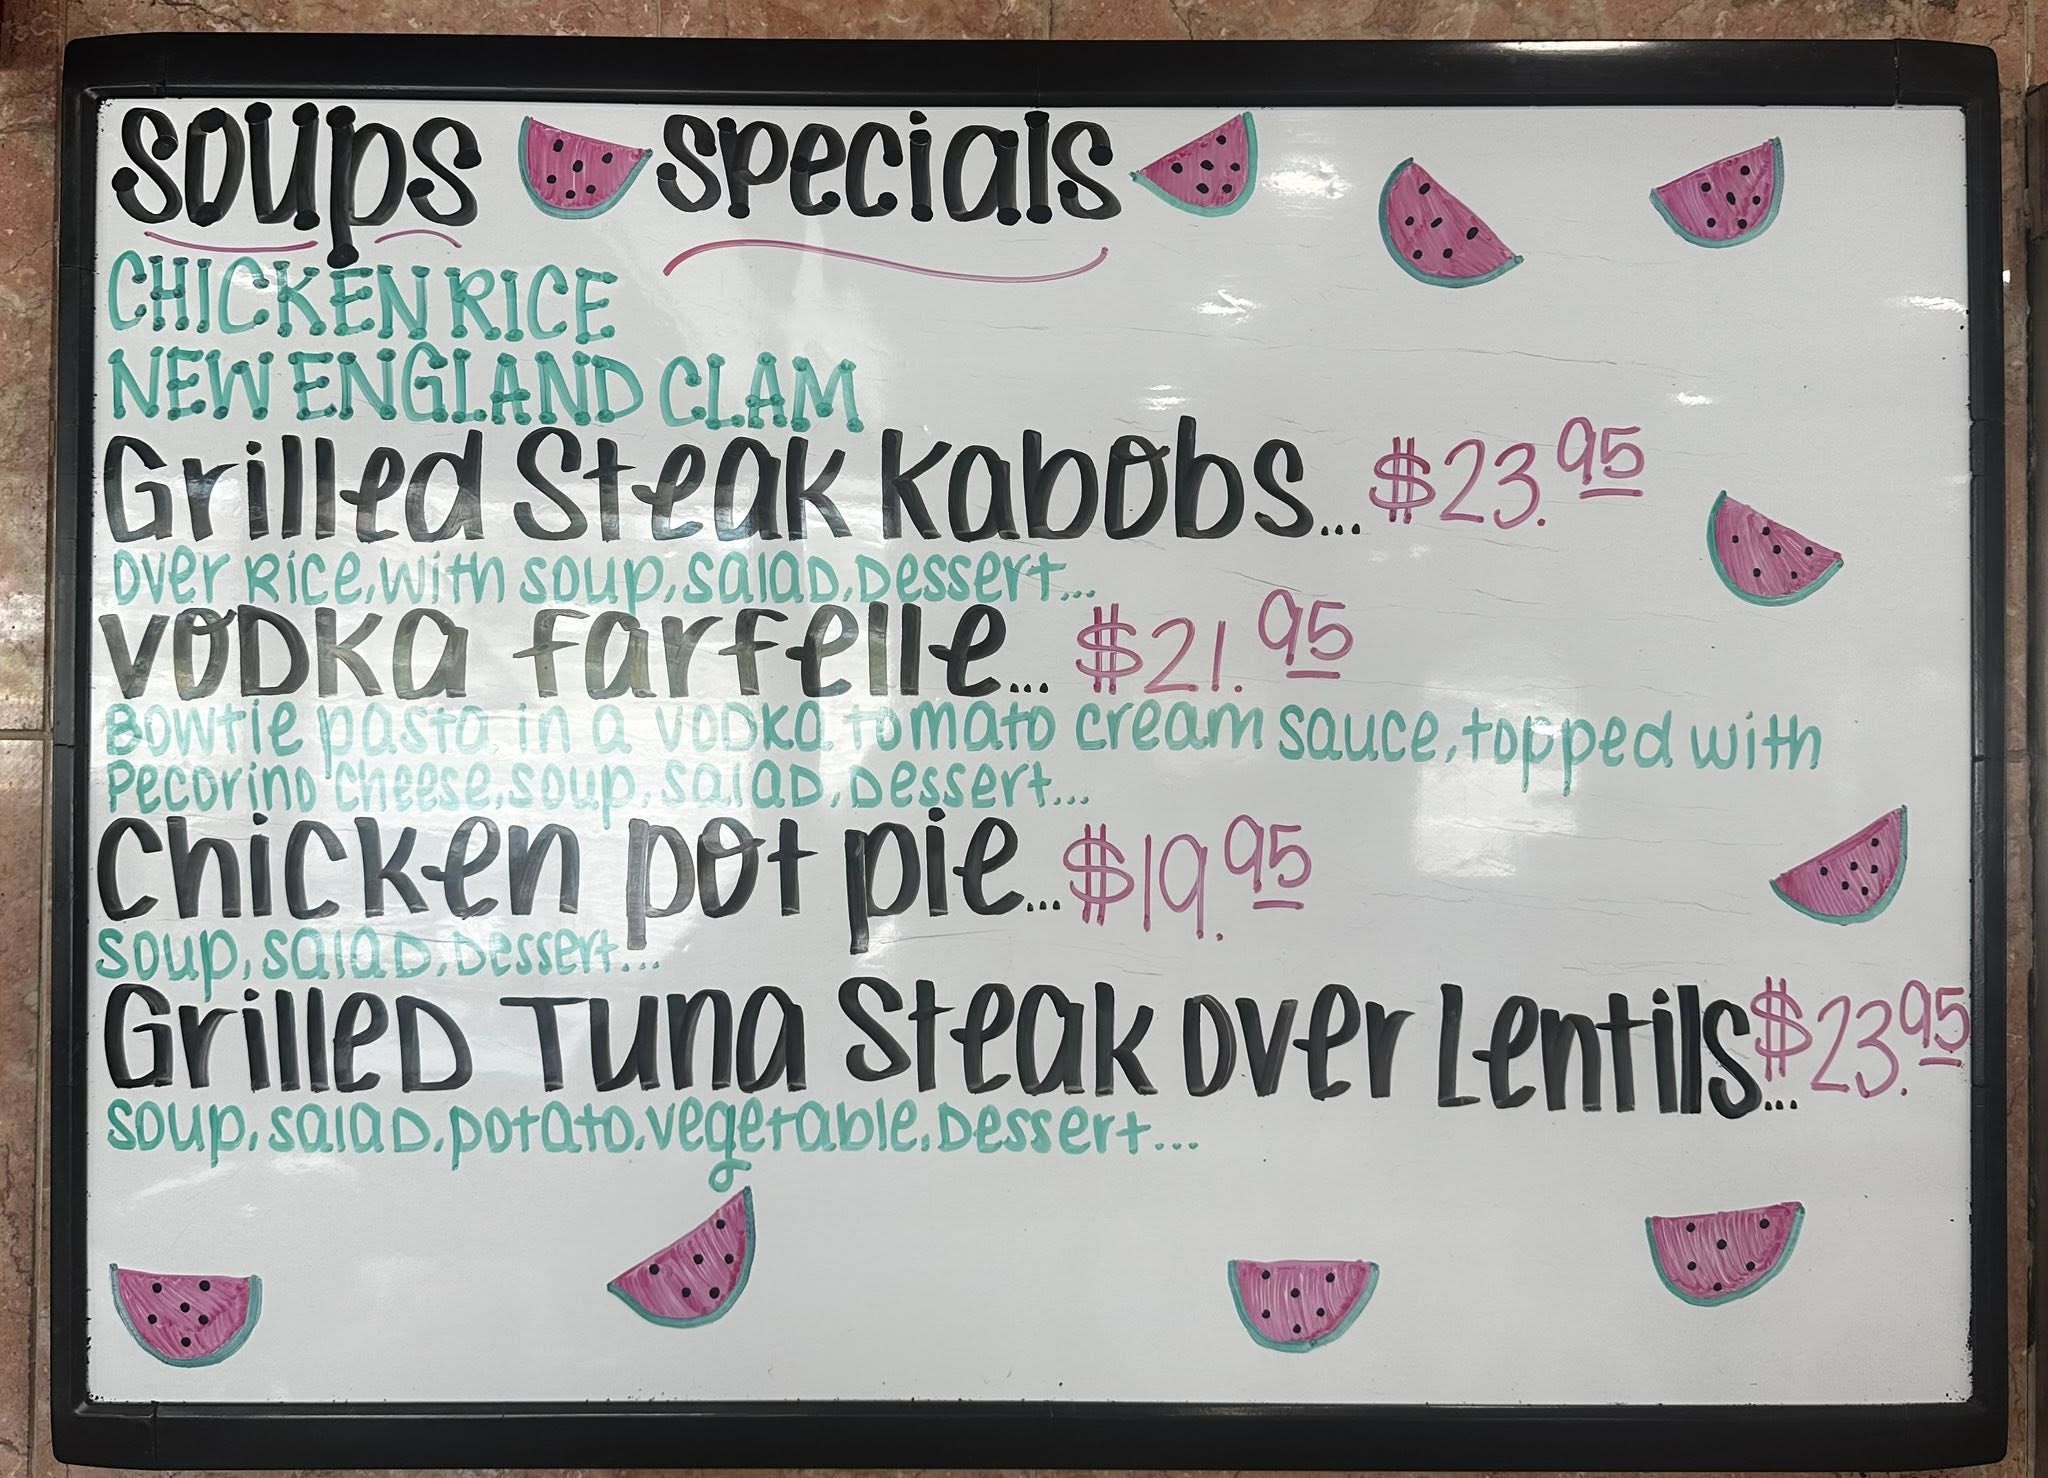 soups specials
CHICKEN RICE
NEW ENGLAND CLAM
Grilled Steak Kabobs... $23.95
over Rice, with soup, salad, Dessert...
Vodka farfelle... $21.95
Bowtie pasta in a vodka tomato cream sauce, topped with
Pecorino cheese, soup, salad, Dessert...
Chicken pot pie... $19.95
soup, salad, Dessert...
Grilled Tuna Steak over Lentils... $23.95
soup, salad, potato, vegetable, Dessert...